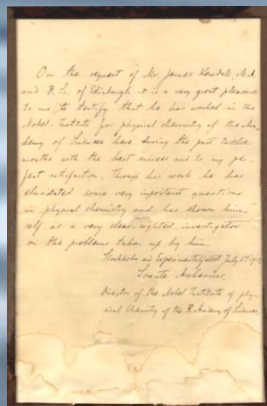 On the request of Mr. James Kendall, M.A.
and B. Sc. of Edinburgh it is a very great pleasure
to me to testify that he has worked in the
Nobel-Institute for physical chemistry of the Aca-
demy of Sciences here during the past twelve
months with the best success and to my per-
fect satisfaction. Through his work he has
elucidated some very important questions
in physical chemistry and has shown him-
self as a very clear-sighted investigator
on the problems taken up by him.
Stockholm July 1st
Svante Arrhenius.
Director of the Nobel Institute of phys-
ical Chemistry of the R. Academy of Sciences.